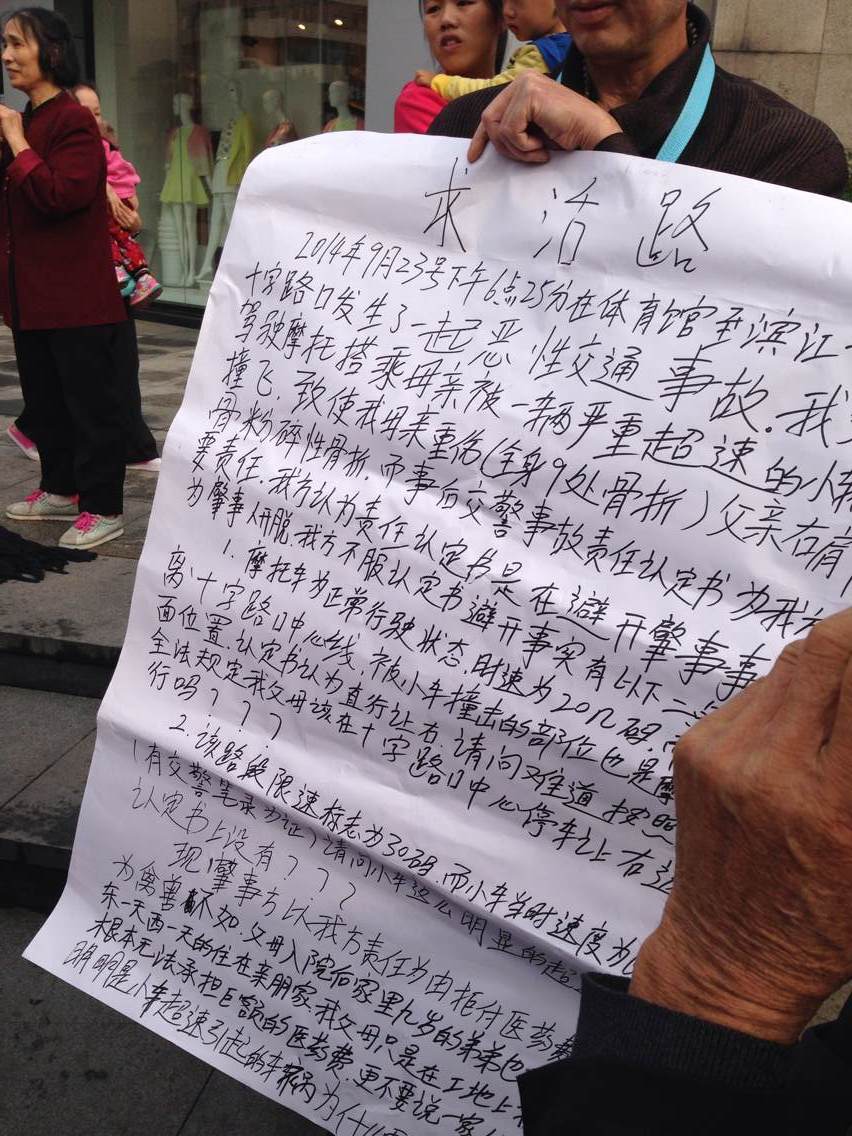 求活路
2014年9月23号下午6点25分在体育馆至滨江
十字路口发生了一起恶性交通事故.我
驾驶摩托搭乘母亲被一辆严重超速的小轿
撞飞.致使我母亲重伤(全身9处骨折)父亲右肩
骨粉碎性骨折.而事后交警事故责任认定书为我方
要责任.我方认为责任认定书是在避开肇事事
为肇事人开脱.我方不服认定书避开事实有以下二
1.摩托车为正常行驶状态.时速为20几码.
离十字路口中心线.被小车撞击的部位也是摩
面位置.认定书认为直行让右.请问难道按照
全法规定我父母该在十字路口中心停车让右边
行吗???
2.该路段限速标志为30码.而小车当时速度为
(有交警笔录为证)请问小车这么明显的超
认定书上没有???
现肇事方以我方责任为由拒付医药费
为禽兽不如.父母入院后家里九岁的弟弟也
东一天西一天的住在亲朋家.我父母只是在工地上
根本无法承担巨额的医药费.更不要说一家
明明是小车超速引起的车祸为什么